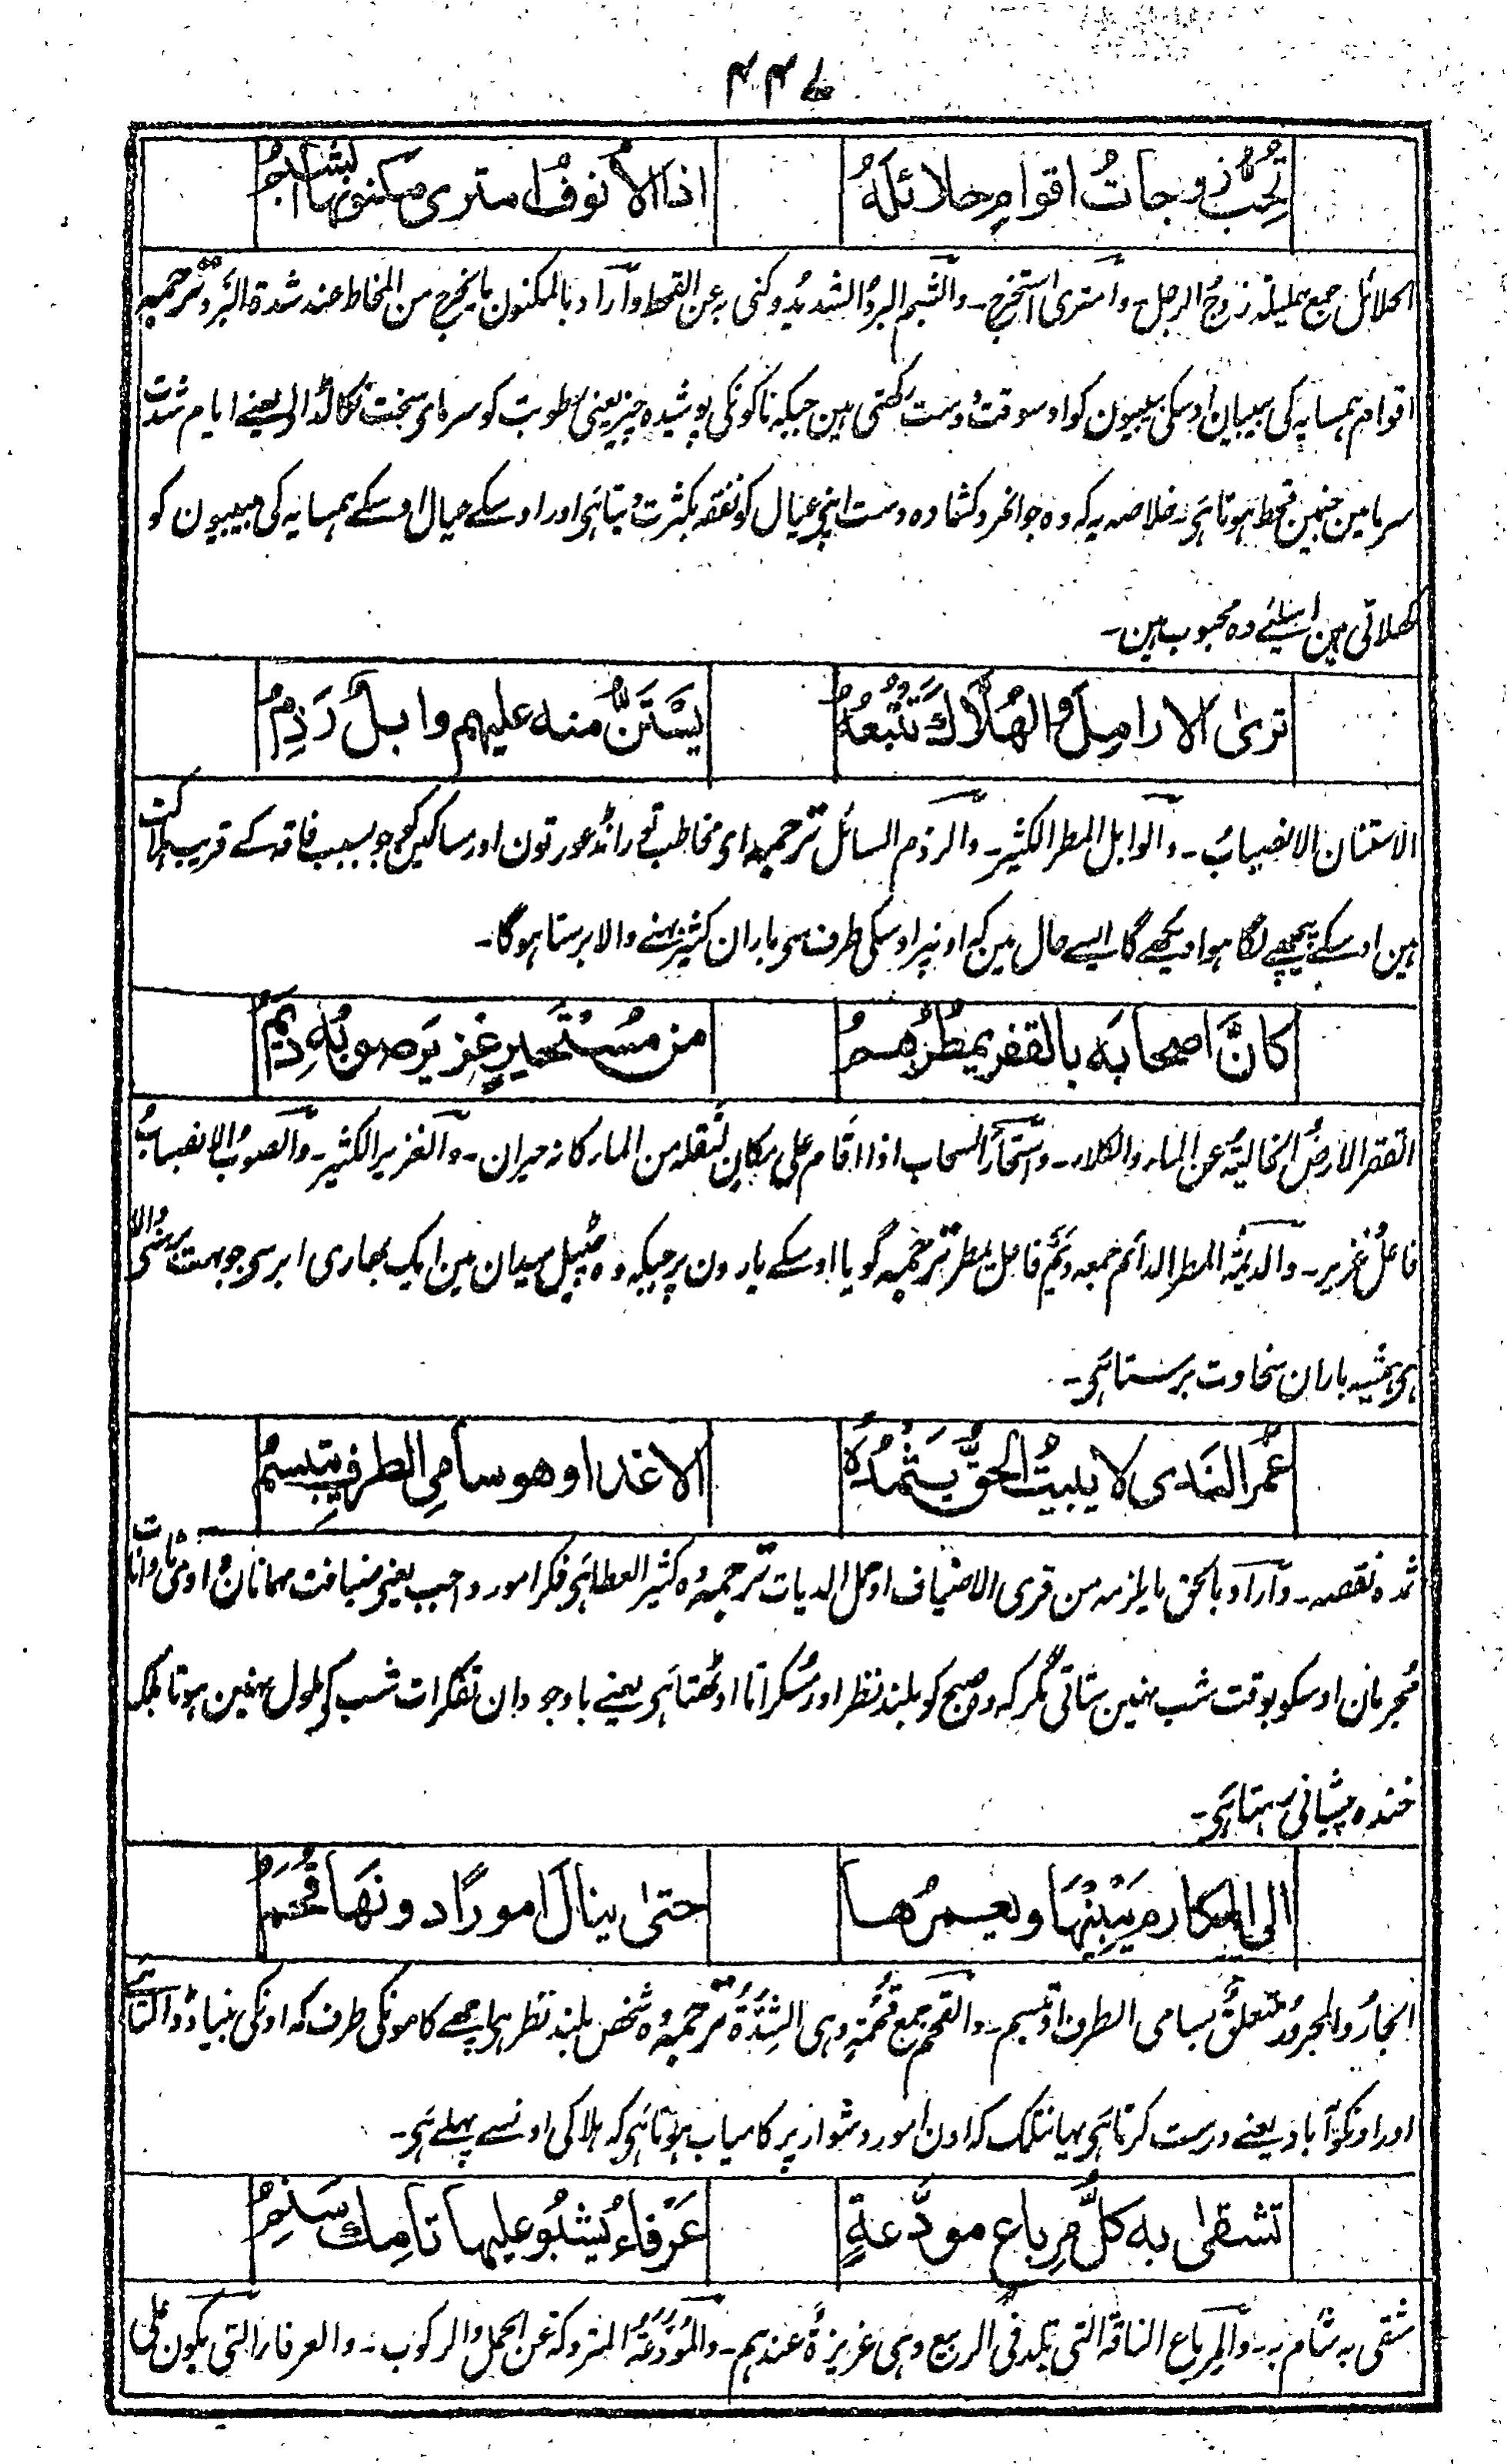 ۴۴۷
تُحِبُّ زوجاتُ اقوامٍ حلائلَهُ اذا الأنوفُ امترى مكنونَها الشَبِمُ
الحلائل جمع حلیلۃ زوجُ الرجل وامتری استخرج۔ والشبم البردُ الشدیدُ وکنی بہ عن القحط وآراد بالمکنون مایخرج من المخاط عند شدۃ البَرد ترجمہ
اقوام ہمسایہ کی بیبیان اوسکی بیبیون کو اوسوقت دوست رکھتی ہین جبکہ ناکونکی پوشیدہ چیز یعنی رطوبت کو سرمای سخت نکالڈالی یعنے ایام شدت
سرما مین جنمین قحط ہوتا ہی۔ خلاصہ یہ کہ وہ جوانمرد کشادہ دست اپنی عیال کو نفقہ بکثرت دیتا ہی اور اوسکے عیال اوسکے ہمسایہ کی بیبیون کو
کھلاتی ہین اسلئے وہ محبوب ہین۔
ترىٰ الارامِلَ والهُلَّاكَ تَتْبَعُهُ يَسْتَنُّ منه عليهم وابلٌ رَذِمُ
الاستنان الانصبابُ۔ والوابل المطر الکثیر۔ والرذم السائل ترجمہ ای مخاطب تو رانڈ عورتون اور مساکین کو جو بسبب فاقہ کے قریب ہلاکت
ہین اوسکے پیچھے لگا ہوا دیکھے گا ایسے حال مین کہ اونپر اوسکی طرف سی باران کثیر بہنے والا برستا ہوگا۔
كانَّ اصحابَه بالقفرِ يمطُرُهم من مُسْتَحيرٍ غزيرٍ صوبُهُ دِيَمُ
القفر الارضُ الخالیۃُ عن الماء والکلاء۔ واستحارَ السحاب اذا اقام علی مکانٍ لثقلہ من الماء کانہ حیران۔ والغزیر الکثیر۔ والصوبُ الانصبابُ
فاعلُ غزیر۔ والدیمۃُ المطر الدائم جمعہ دیَم فاعل یمطر ترجمہ گویا اوسکے یارون پر جبکہ وہ چٹیل میدان مین ایک بھاری ابر سی جو بہت برسنی والا
ہی ہمیشہ باران سخاوت برستا ہی۔
غَمْرُ النَدى لا يبيتُ الحقُّ يَثْمُدُهُ الا غدا وهو سامِى الطرفِ يبتسمُ
ثمدہ نقصہ۔ وآراد بالحق مایلزمہ من قری الاضیاف او حمل الدیات ترجمہ وہ کثیر العطا ہی فکر امور واجب یعنی ضیافت مہمانان و ادائی تاوانات
مجرمان اوسکو بوقت شب نہین ستاتی مگر کہ وہ صبح کو بلند نظر اور مسکراتا اوٹھتا ہی یعنے باوجود ان تفکرات شب کی ملول نہین ہوتا بلکہ
خندہ پیشانی رہتا ہی۔
الى المكارمِ يَبْنِيْهَا ويعمرُها حتىٰ ينالَ امورًا دونَهَا قُحَمُ
الجارُ والمجرورُ متعلقٌ بسامی الطرف او یبتسم۔ والقحم جمع قُحمۃٍ وہی الشِدَّۃُ ترجمہ وہ شخص بلند نظر ہی اچھے کامونکی طرف کہ اونکی بنیاد ڈالتا ہی
اور اونکو آباد یعنے درست کرتا ہی یہانتک کہ اون امور دشوار پر کامیاب ہوتا ہی کہ ہلاکی اونسے پہلے ہی۔
تشقىٰ به كلُّ مِرباعٍ مودَّعةٍ عَرْفاءُ يشتُو عليها تامِكٌ سَنِمُ
شقی بہ شأم بہ۔ والمِرباع الناقۃ التی تلد فی الربیع وہی عزیزۃٌ عندہم۔ والمُوَدَّعۃُ المتروکۃ عن الحمل والرکوب۔ والعرفاء التی یکون علی